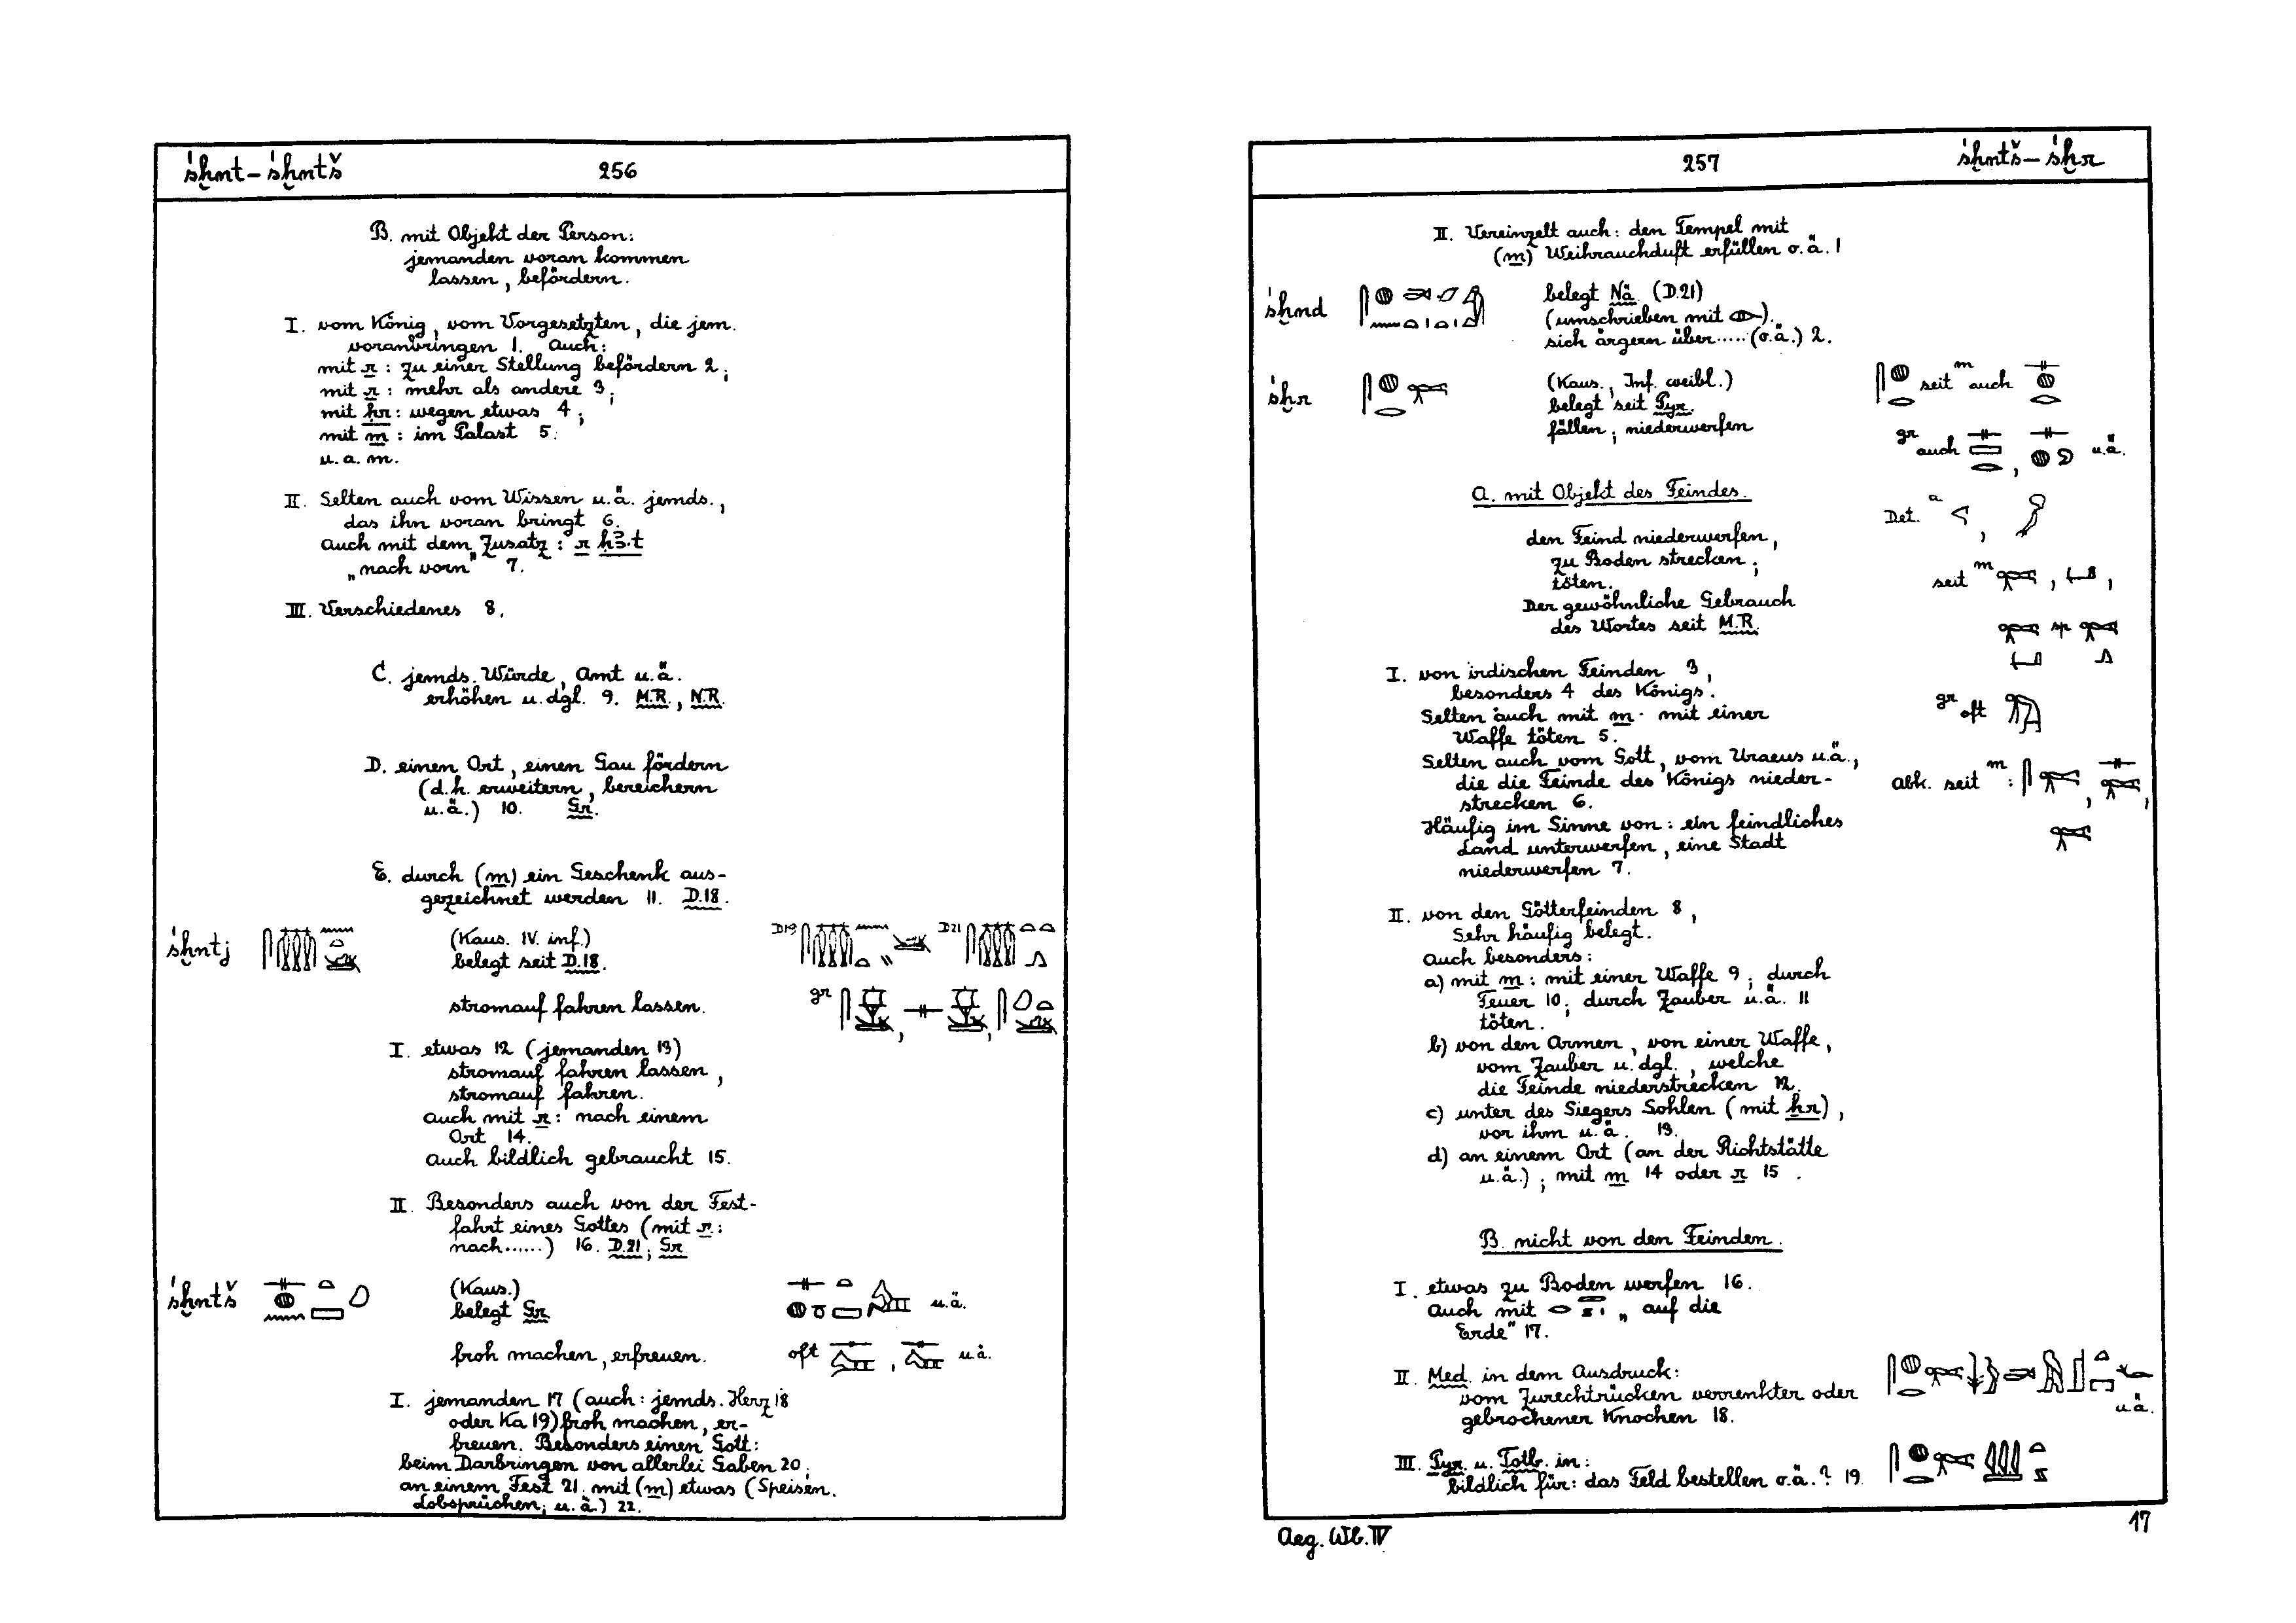 śḫnt – śḫntš
256
B. mit Objekt der Person:
jemanden voran kommen
lassen, befördern.
I. vom König, vom Vorgesetzten, die jem.
voranbringen 1. Auch:
mit r : zu einer Stellung befördern 2;
mit r : mehr als andere 3;
mit ḥr : wegen etwas 4;
mit m : im Palast 5.
u.a.m.
II. Selten auch vom Wissen u.ä. jemds.,
das ihn voran bringt 6.
Auch mit dem Zusatz : r ḥꜣ.t
„nach vorn" 7.
III. Verschiedenes 8.
C. jemds. Würde, Amt u.ä.
erhöhen u.dgl. 9. M.R., N.R.
D. einen Ort, einen Gau fördern
(d.h. erweitern, bereichern
u.ä.) 10. Gr.
E. durch (m) ein Geschenk aus-
gezeichnet werden 11. D.18.
śḫntj (Kaus. IV. inf.) D19 D21
belegt seit D.18.
stromauf fahren lassen. gr
I. etwas 12 (jemanden 13)
stromauf fahren lassen,
stromauf fahren.
Auch mit r : nach einem
Ort 14.
Auch bildlich gebraucht 15.
II. Besonders auch von der Fest-
fahrt eines Gottes (mit r :
nach......) 16. D.21; Gr
śḫntš (Kaus.) u.ä.
belegt Gr
froh machen, erfreuen. oft , u.ä.
I. jemanden 17 (auch: jemds. Herz 18
oder Ka 19) froh machen, er-
freuen. Besonders einen Gott:
beim Darbringen von allerlei Gaben 20;
an einem Fest 21. mit (m) etwas (Speisen,
Lobsprüchen, u.ä.) 22.
257
śḫntš – śḫr
II. Vereinzelt auch: den Tempel mit
(m) Weihrauchduft erfüllen o.ä. 1
śḫnd belegt Nä (D.21)
(umschrieben mit ).
sich ärgern über.....(o.ä.) 2.
śḫr (Kaus., Inf. weibl.) seit m auch
belegt seit Pyr.
fällen; niederwerfen
gr auch , u.ä.
A. mit Objekt des Feindes.
Det. a ,
den Feind niederwerfen,
zu Boden strecken;
töten.
seit m , ,
Der gewöhnliche Gebrauch
des Wortes seit M.R.
sp
I. von irdischen Feinden 3,
besonders 4 des Königs.
gr oft
Selten auch mit m : mit einer
Waffe töten 5.
Selten auch vom Gott, vom Uraeus u.ä.,
die die Feinde des Königs nieder-
strecken 6.
abk. seit m : , ,
Häufig im Sinne von : ein feindliches
Land unterwerfen, eine Stadt
niederwerfen 7.
II. von den Götterfeinden 8,
Sehr häufig belegt.
Auch besonders:
a) mit m : mit einer Waffe 9; durch
Feuer 10; durch Zauber u.ä. 11
töten.
b) von den Armen, von einer Waffe,
vom Zauber u.dgl., welche
die Feinde niederstrecken 12.
c) unter des Siegers Sohlen (mit ẖr),
vor ihm u.ä. 13.
d) an einem Ort (an der Richtstätte
u.ä.); mit m 14 oder r 15.
B. nicht von den Feinden.
I. etwas zu Boden werfen 16.
Auch mit „auf die
Erde" 17.
II. Med. in dem Ausdruck:
vom Zurechtrücken verrenkter oder
gebrochener Knochen 18.
u.ä.
III. Pyr. u. Totb. in:
bildlich für: das Feld bestellen o.ä.? 19.
Aeg. Wb. IV
17